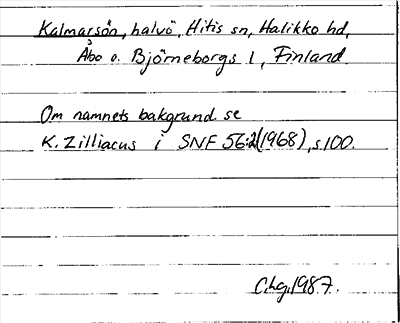 Kalmarsön, halvö, Hitis sn, Halikko hd,
Åbo o. Björneborgs l, Finland.
Om namnets bakgrund se
K. Zilliacus i SNF 56:2 (1968), s 100.
C.hg. 1987.